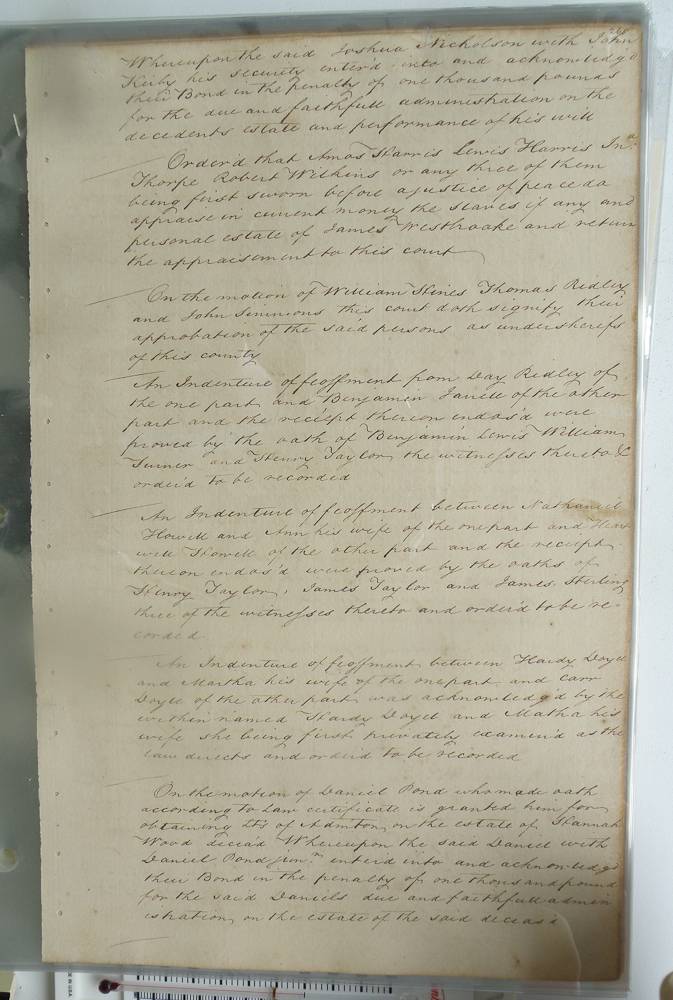 Whereupon the said Joshua Nicholson with John
Kirby his security enter'd into and acknowledg'd
their Bond in the penalty of one thousand pounds
for the due and faithfull administration on the
decedents estate and performance of his will
Order'd that Amos Harris Lewis Harris Jnr.
Thorpe Robert Wilkins or any three of them
being first sworn before a justice of peace do
appraise in current money the slaves if any and
personal estate of James Westbrooke and return
the appraisement to this court
On the motion of William Hines Thomas Ridley
and John Simmons this court doth signify their
approbation of the said persons as undersherifs
of this county
An Indenture of feoffment from Day Ridley of
the one part and Benjamin of the other
part and the reciept thereon endos'd were
proved by the oath of Benjamin Lewis William
Turner and Henry Taylor the witnesses thereto &
order'd to be recorded
An Indenture of feoffment between Nathaniel
Howell and Ann his wife of the one part and Hart
well Howell of the other part and the reciept
thereon endos'd were proved by the oaths of
Henry Taylor, James Taylor and James Sterling
three of the witnesses thereto and order'd to be re-
corded
An Indenture of feoffment between Hardy Doyel
and Martha his wife of the one part and Carr
Doyel of the other part was acknowledg'd by the
within named Hardy Doyel and Matha his
wife she being first privately examin'd as the
law directs and order'd to be recorded
On the motion of Daniel Pond who made oath
according to Law certificate is granted him for
obtaining Lts of Admton, on the estate of Hannah
Wood deceas'd Whereupon the said Daniel with
Daniel Pond junr. enter'd into and acknowledg'd
their Bond in the penalty of one thousand pound
for the said Daniels due and faithfull admin
istration, on the estate of the said deceas'd